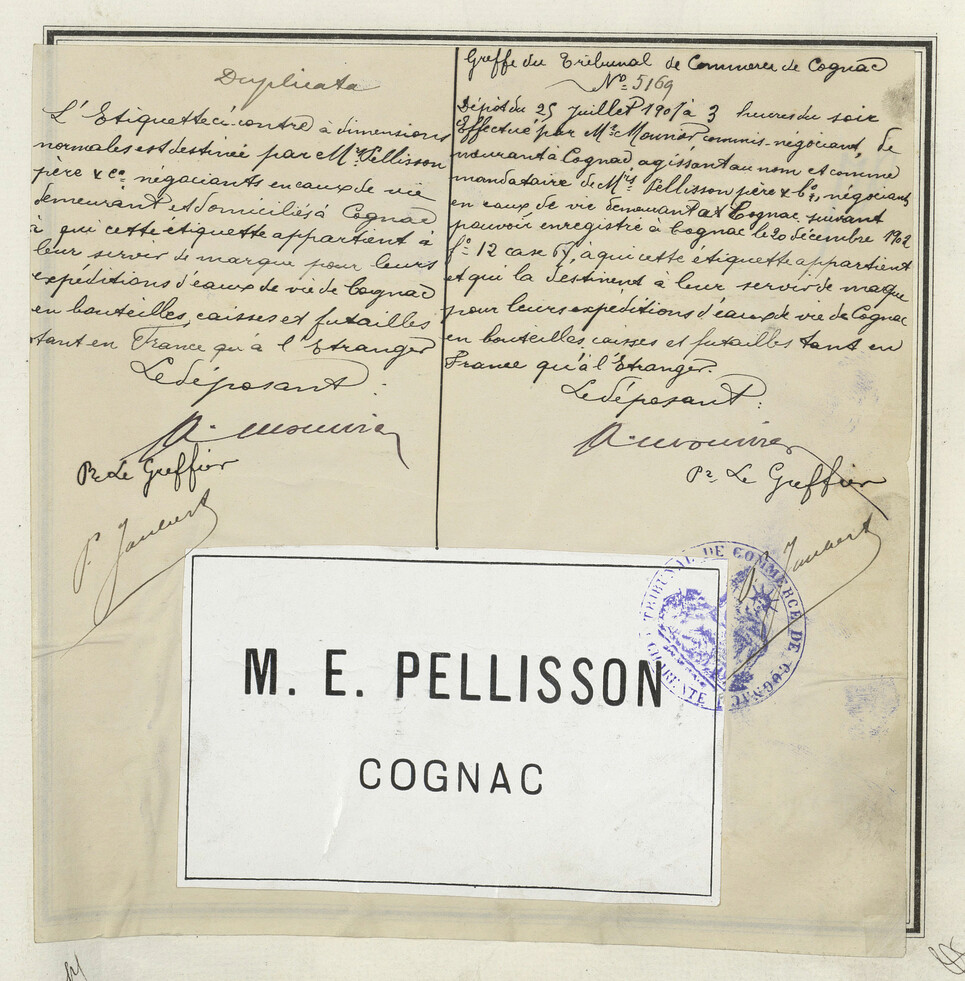 Duplicata
L'Etiquette ci-contre à dimensions
normales est destinée par Mrs Pellisson
père & Co négociants en eaux de vie
demeurant et domiciliés à Cognac
à qui cette étiquette appartient à
leur servir de marque pour leurs
expéditions d'eaux de vie de Cognac
en bouteilles, caisses et futailles
tant en France qu'à l'Etranger
Le déposant :
A. Mounier
Pr Le Greffier
P. Jaubert
Greffe du Tribunal de Commerce de Cognac
No 5169
Dépôt du 25 Juillet à 3 heures du soir
Effectué par Mr Mounier commis-négociant, de
meurant à Cognac agissant au nom et comme
mandataire de Mrs Pellisson père & Co, négociants
en eaux de vie demeurant à Cognac, suivant
pouvoir enregistré à Cognac le 20 décembre 1902
fo 12 case à qui cette étiquette appartient
et qui la destinent à leur servir de marque
pour leurs expéditions d'eaux de vie de Cognac
en bouteilles, caisses et futailles tant en
France qu'à l'Etranger.
Le déposant :
A. Mounier
Pr Le Greffier
P. Jaubert
TRIBUNAL DE COMMERCE DE COGNAC
CHARENTE
M. E. PELLISSON
COGNAC